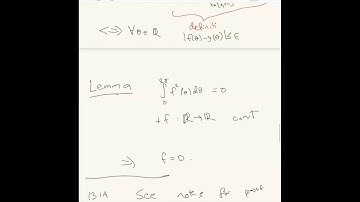 ⟺ ∀θ∈ℝ
definiti
|f(θ)-g(θ)|≤ε
Lemma ∫₀^{2π} f²(θ)dθ = 0
+ f : ℝ→ℝ cont
⟹ f=0.
See notes for proof